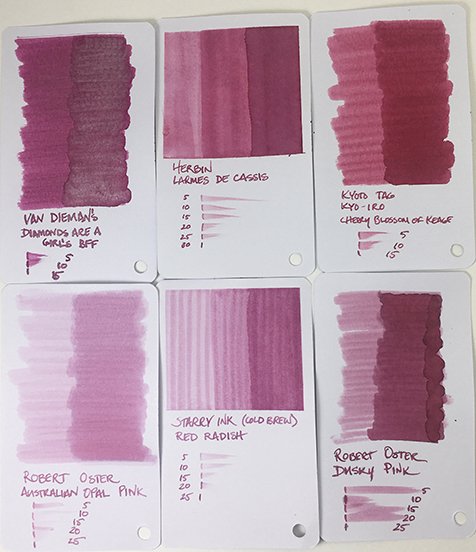 VAN DIEMAN'S
DIAMONDS ARE A
GIRL'S BFF
5
10
15
HERBIN
LARMES DE CASSIS
5
10
15
20
25
30
KYOTO TAG
KYO-IRO
CHERRY BLOSSOM OF KEAGE
5
10
15
ROBERT OSTER
AUSTRALIAN OPAL PINK
5
10
15
20
25
STARRY INK (COLD BREW)
RED RADISH
5
10
15
20
25
ROBERT OSTER
DUSKY PINK
5
10
15
20
25